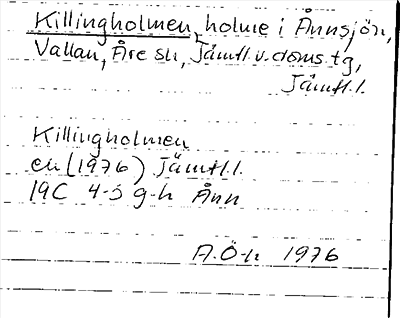 Killingholmen, holme i Ånnsjön,
Vallan, Åre sn, Jämtl. v. doms. tg,
Jämtl. l.
Killingholmen
ek (1976) Jämtl. l.
19C 4-5 g-h Ånn
A.Ö-n 1976